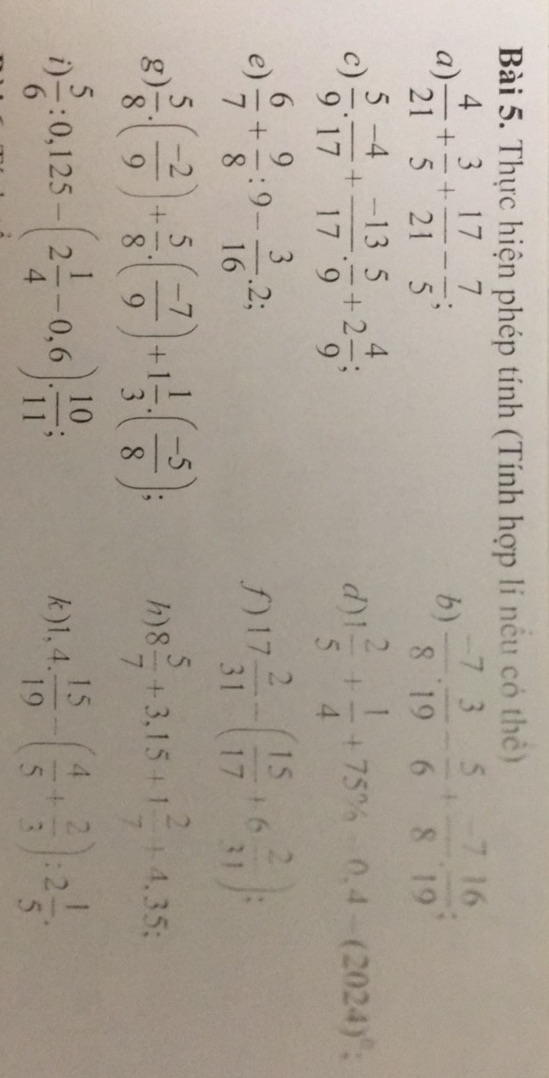 Bài 5. Thực hiện phép tính (Tính hợp lí nếu có thể)
a) 4/21 + 3/5 + 17/21 - 7/5; b) -7/8 . 3/19 - 5/6 + -7/8 . 16/19;
c) 5/9 . -4/17 + -13/17 . 5/9 + 2 4/9; d) 1 2/5 + 1/4 + 75% - 0,4 - (2024)⁰;
e) 6/7 + 9/8 : 9 - 3/16 . 2; f) 17 2/31 - (15/17 + 6 2/31);
g) 5/8 . (-2/9) + 5/8 . (-7/9) + 1 1/3 . (-5/8); h) 8 5/7 + 3,15 + 1 2/7 + 4,35;
i) 5/6 : 0,125 - (2 1/4 - 0,6) . 10/11; k) 1,4 . 15/19 - (4/5 + 2/3) : 2 1/5.